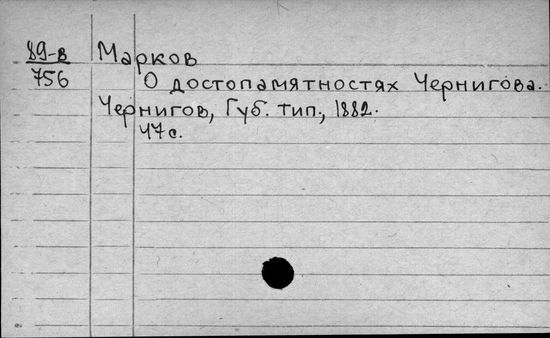 89-в Марков
756 О достопамятностях Чернигова.
Чернигов, Губ. тип., 1882.
47 с.